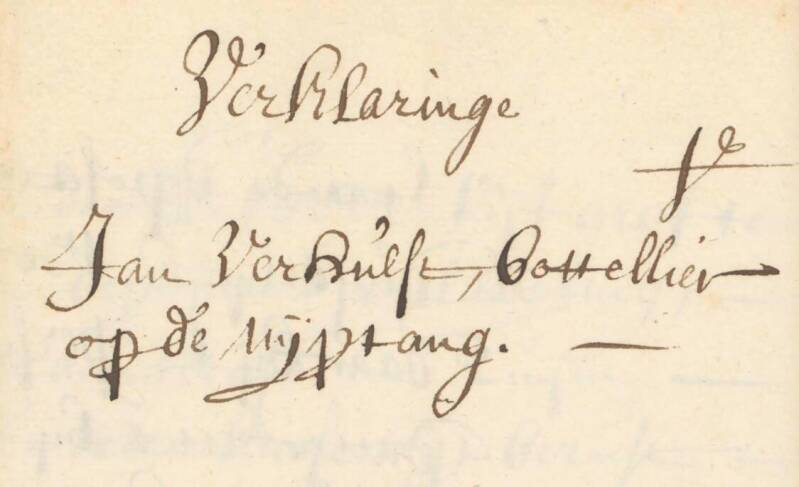 Verklaringe
Jan Verhulst, bottellier
op de Nijptang.